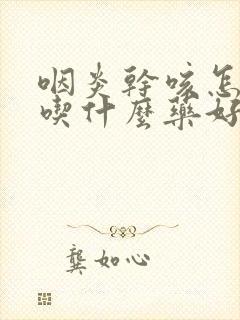 咽炎幹咳怎
喫什麼藥好
龔如心